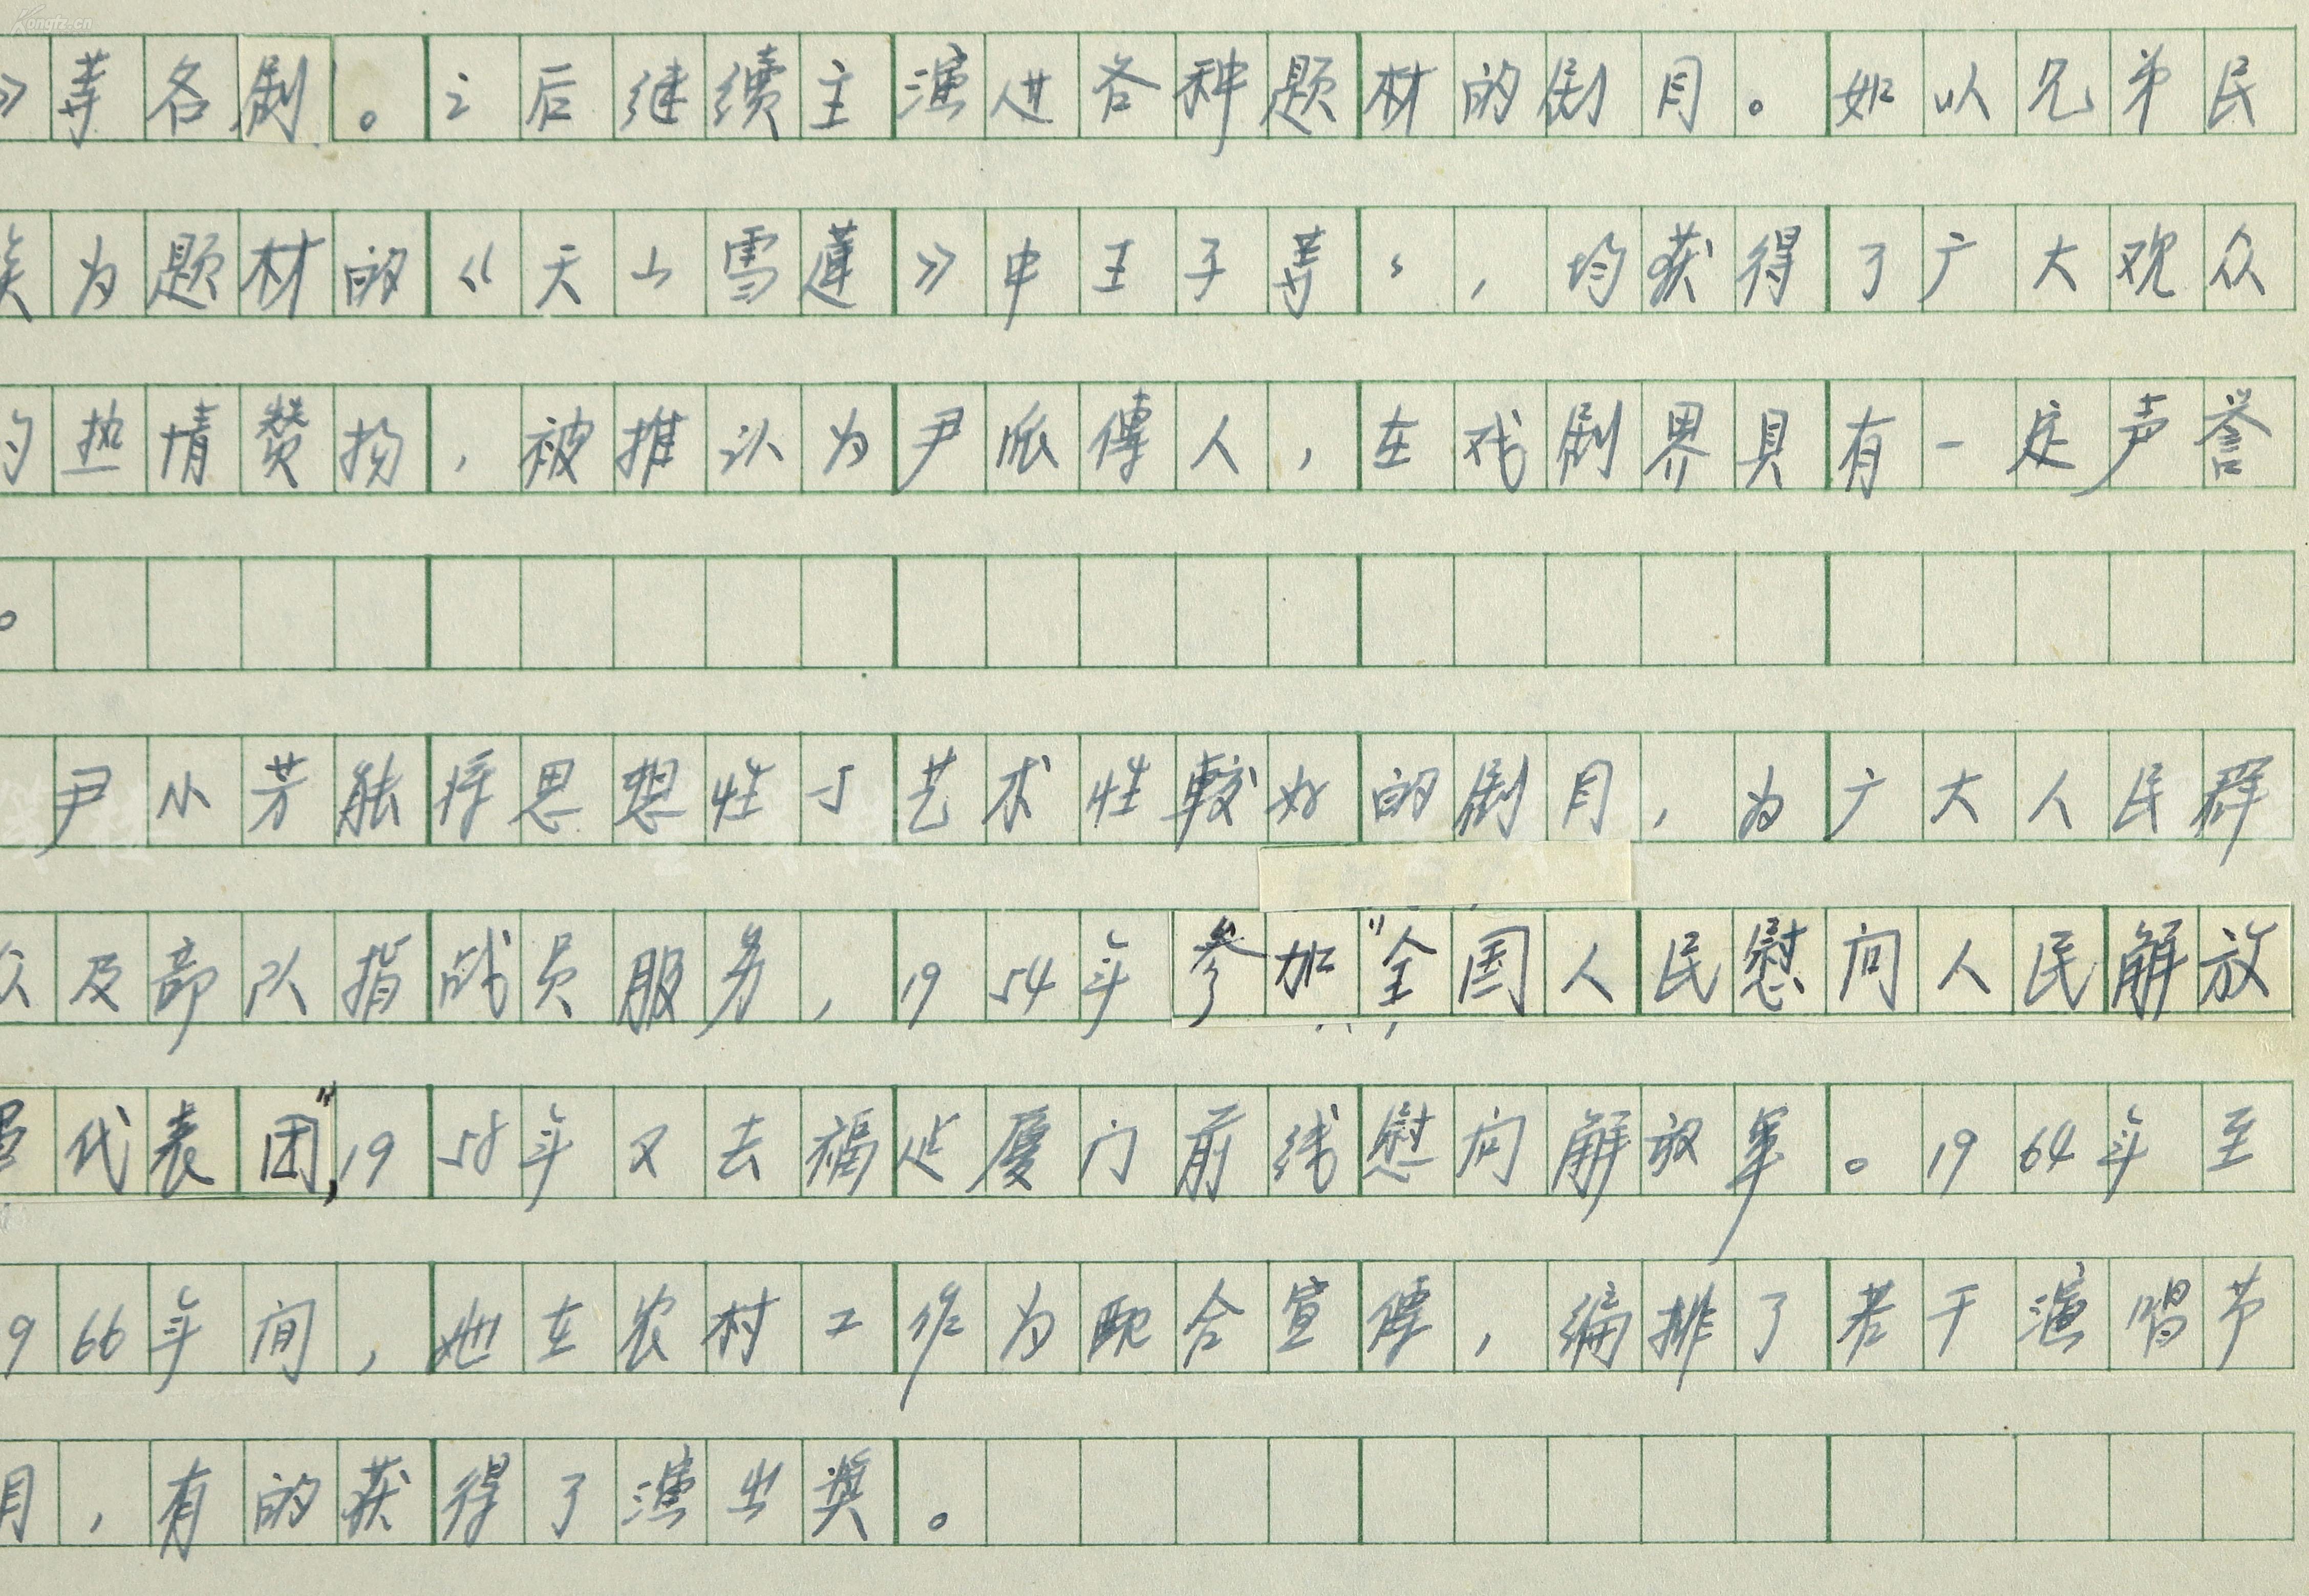 Kongfz.cn
》等各剧。之后继续主演进各种题材的剧目。如以兄弟民
族为题材的《天山雪蓮》中王子等々，均获得了广大观众
的热情赞扬，被推认为尹派傳人，在戏剧界具有一定声誉
。
尹小芳能将思想性与艺术性較好的剧目，为广大人民群
众及部队指战员服务，1954年参加"全国人民慰问人民解放
军代表团"，1958年又去福建厦门前线慰问解放军。1964年至
966年间，她在农村工作为配合宣傳，编排了若干演唱节
目，有的获得了演出奖。